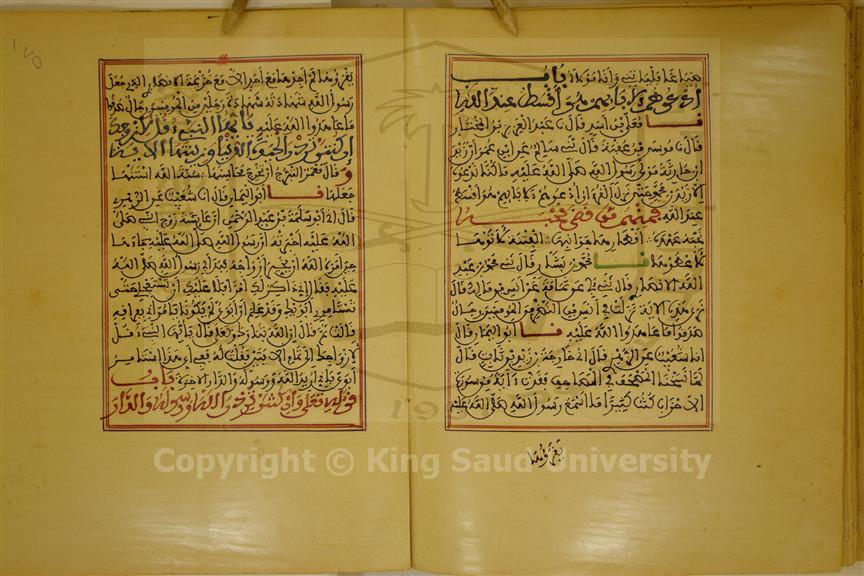 فليأتني وأنا مولاه باب
ادعوهم لآبائهم هو أقسط عند الله
نا معلى بن أسد قال نا عبد العزيز بن المختار
قال نا موسى بن عقبة قال ني سالم عن ابن عمر أن زيد
بن حارثة مولى رسول الله صلى الله عليه ما كنا ندعوه
إلا زيد بن محمد حتى نزل القرآن ادعوهم لآبائهم هو أقسط
عند الله فمنهم من قضى نحبه
نحبه عهده أقطارها جوانبها الفتنة لآتوها
لأعطوها نا محمد بن بشار قال ني محمد بن عبد
الله الانصاري قال ني أبي عن ثمامة عن أنس بن مالك قال
نرى هذه الآية نزلت في أنس بن النضر من المومنين رجال
صدقوا ما عاهدوا الله عليه نا أبو اليمان قال
انا شعيب عن الزهري قال اني خارجة بن زيد بن ثابت قال
لما نسخنا الصحف في المصاحف فقدت آية من سورة
الأحزاب كنت كثيرا ما أسمع رسول الله صلى الله عليه
يقرؤها
يقرؤها لم أجدها مع أحد إلا مع خزيمة الانصاري الذي جعل
رسول الله شهادته شهادة رجلين من المومنين رجال صدقوا
ما عاهدوا الله عليه يأيها النبي قل لأزواجك
إن كنتن تردن الحيوة الدنيا وزينتها الآية
وقال معمر التبرج أن تخرج محاسنها سنة الله استنها
جعلها نا أبو اليمان قال انا شعيب عن الزهري
قال اني أبو سلمة بن عبد الرحمن أن عائشة زوج النبي صلى
الله عليه أخبرته أن رسول الله صلى الله عليه جاءها
حين أمر الله أن يخير أزواجه فبدأ بي رسول الله صلى الله
عليه فقال إني ذاكر لك أمرا فلا عليك أن لا تستعجلي حتى
تستامري أبويك وقد علم أن أبوي لم يكونا يامراني بفراقه
قالت ثم قال إن الله قال يأيها النبي قل
لأزواجك إلى تمام الآيتين فقلت له ففي أي هذا أستامر
أبوي فإني أريد الله ورسوله والدار الآخرة باب
قوله تعالى وإن كنتن تردن الله ورسوله والدار
Copyright © King Saud University